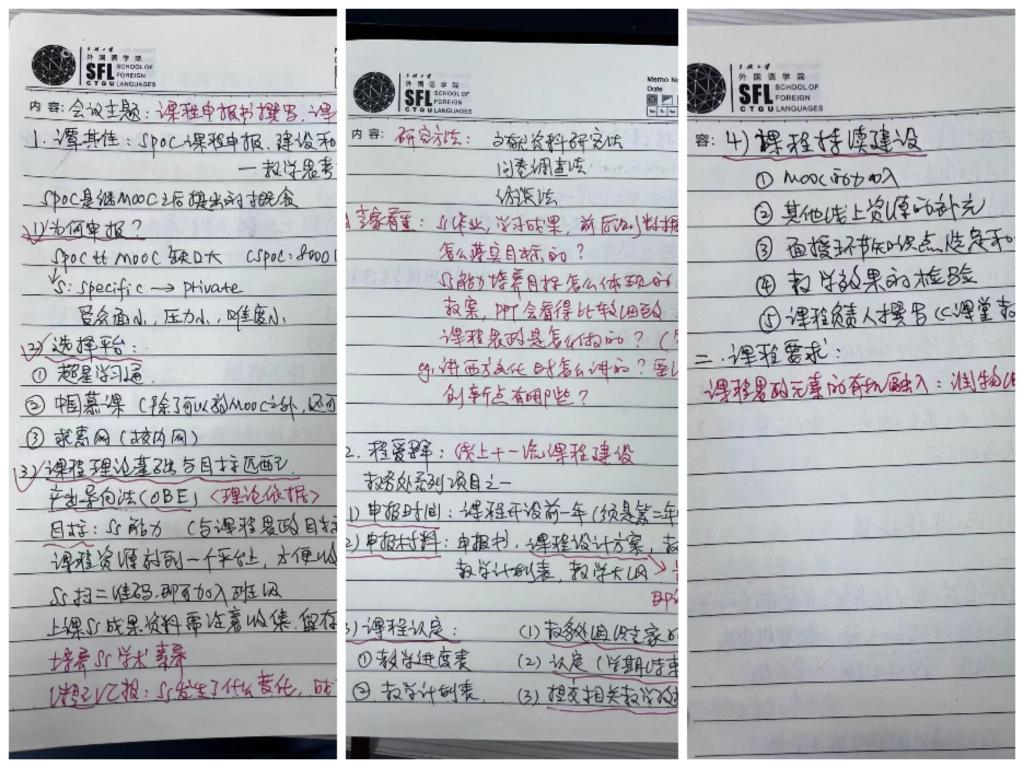 三峡大学
外国语学院
SFL SCHOOL OF FOREIGN LANGUAGES
CTGU
内容: 会议主题: 课程申报书撰写, 课
1. 谭其佳: SPOC课程申报、建设和
—教学思考
SPOC是继MOOC之后提出的概念
1) 为何申报?
SPOC比MOOC缺口大 CSPOC: 8000
S: specific → private
受众面小, 压力小, 难度小
2) 选择平台:
① 超星学习通
② 中国慕课 (除了可以的MOOC之外, 还可
③ 求索网 (校内网)
3) 课程理论基础与目标匹配
产出导向法 (OBE) <理论依据>
目标: Ss能力 (与课程思政目标
课程资源放到一个平台上, 方便
Ss扫二维码即可加入班级
上课Ss成果资料需注意收集, 留存
培养Ss学术素养
汇报: Ss发生了什么变化,
三峡大学
外国语学院
SFL SCHOOL OF FOREIGN LANGUAGES
CTGU
Memo No
Date
内容: 研究方法: 文献资料研究法
问卷调查法
访谈法
专家看重: Ss作业, 学习成果, 前后对比数据
怎么落实目标的?
Ss能力培养目标怎么体现的
教案, PPT会看得比较细致
课程思政是怎么做的?
eg. 讲西方文化时怎么讲的?
创新点有哪些?
2. 程爱群: 线上十一流课程建设
教务处系列项目之一
1) 申报时间: 课程开设前一年 (须是第二年
2) 申报材料: 申报书, 课程设计方案, 教
教学计划表, 教学大纲
3) 课程认定: (1) 教务处组织专家
① 教学进度表 (2) 认定 (学期结束
② 教学计划表 (3) 提交相关教学
三峡大学
外国语学院
SFL SCHOOL OF FOREIGN LANGUAGES
CTGU
容: 4) 课程持续建设
① MOOC的加入
② 其他线上资源的补充
③ 面授环节知识点选定和
④ 教学效果的检验
⑤ 课程负责人撰写 (《课堂教
二. 课程要求:
课程思政元素的有机融入: 润物